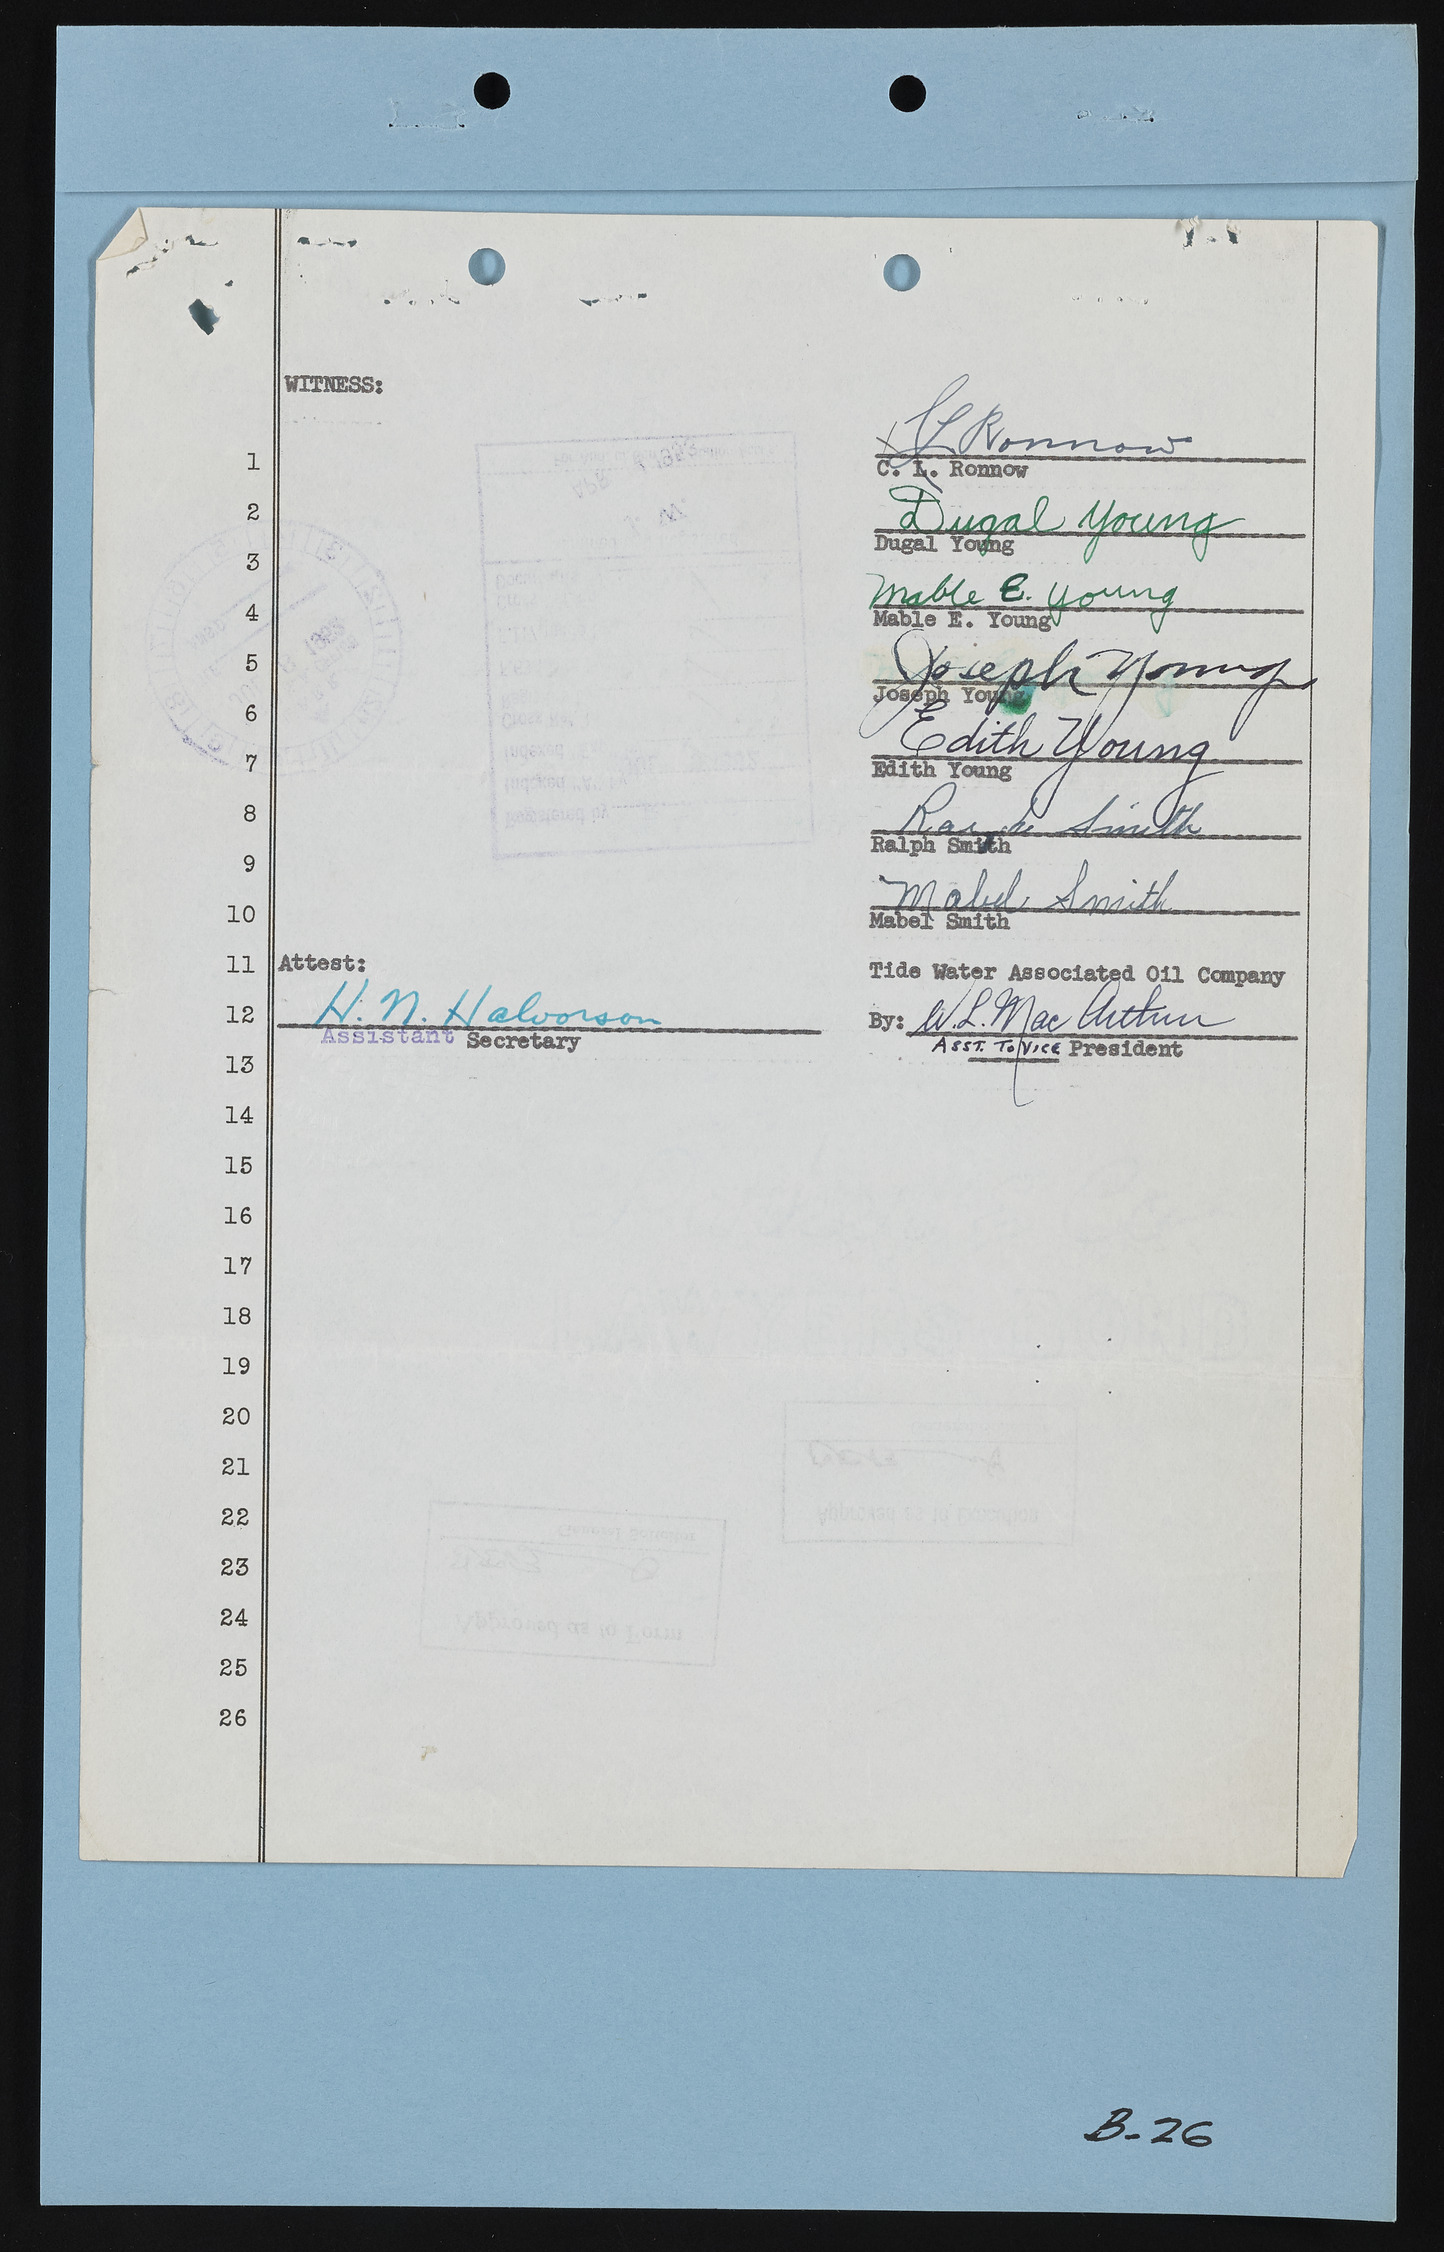 WITNESS:
C L Ronnow
1
C. L. Ronnow
2
Dugal Young
Dugal Young
3
Mable E. Young
4
Mable E. Young
5
Joseph Young
Joseph Young
6
Edith Young
7
Edith Young
8
Ralph Smith
9
Ralph Smith
Mabel Smith
10
Mabel Smith
11 Attest:
Tide Water Associated Oil Company
12
H. N. Halvorson
By: W. L. Mac Arthur
Assistant Secretary
ASST. TO VICE President
13
14
15
16
17
18
19
20
21
22
23
24
25
26
B-26